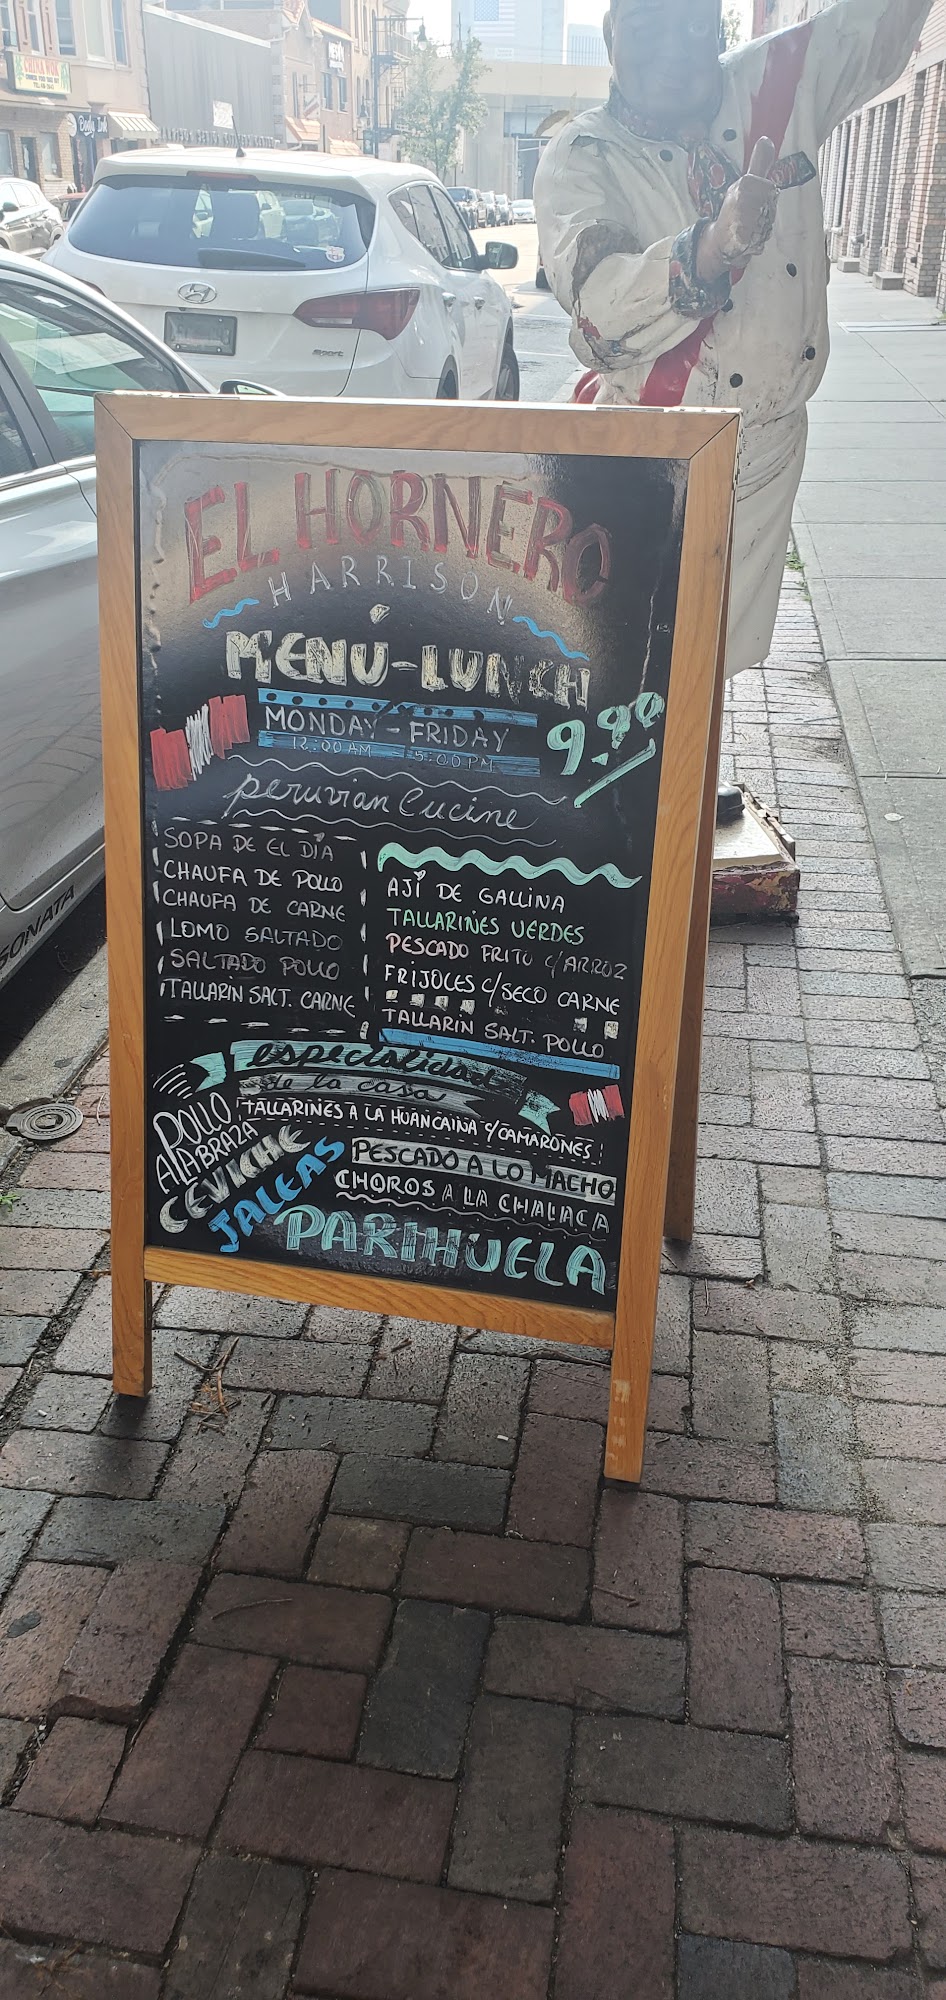 CHINA WOK
Body Ink
Sport
SONATA
EL HORNERO
HARRISON
MENÚ-LUNCH
MONDAY - FRIDAY
12:00 AM - 5:00 PM
9.99
peruvian Cucine
SOPA DE EL DÍA
CHAUFA DE POLLO
CHAUFA DE CARNE
LOMO SALTADO
SALTADO POLLO
TALLARIN SALT. CARNE
AJÍ DE GALLINA
TALLARINES VERDES
PESCADO FRITO C/ARROZ
FRIJOLES C/SECO CARNE
TALLARIN SALT. POLLO
especialidad
de la casa
POLLO
A LA BRAZA
CEVICHE
JALEAS
TALLARINES A LA HUANCAINA C/CAMARONES
PESCADO A LO MACHO
CHOROS A LA CHALACA
PARIHUELA